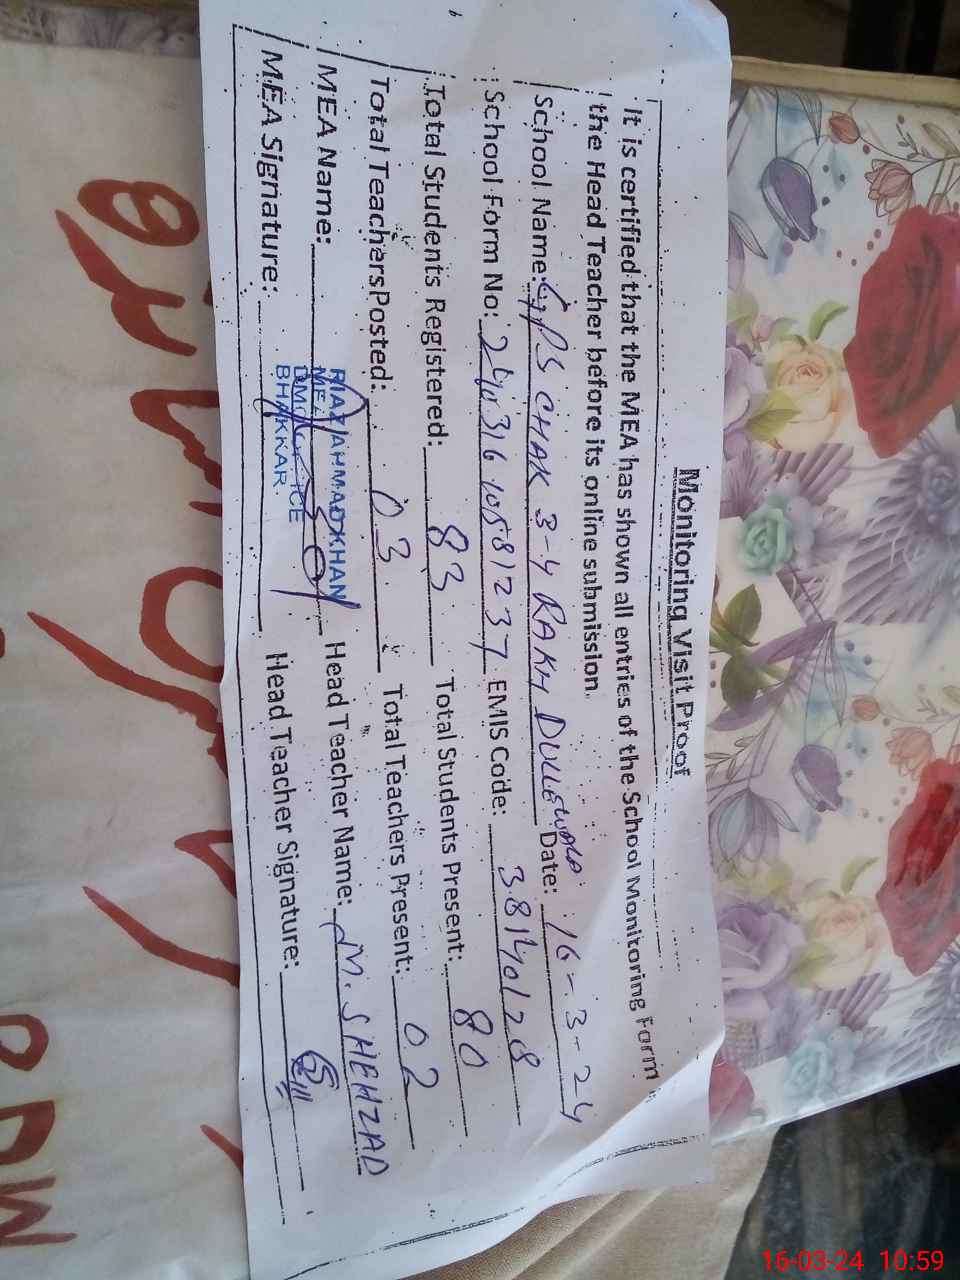 Monitoring Visit Proof
It is certified that the MEA has shown all entries of the School Monitoring Form
the Head Teacher before its online submission.
School Name: GPS CHAK 3-4 RAKH DULLEWALA Date: 16-3-24
School Form No: EMIS Code: 38140128
Total Students Registered: 83 Total Students Present: 80
Total Teachers Posted: 03 Total Teachers Present: 02
MEA Name: RIAZ AHMAD KHAN Head Teacher Name: M. SHEHZAD
MEA
DMO OFFICE
BHAKKAR.
MEA Signature: Head Teacher Signature:
16-03-24 10:59